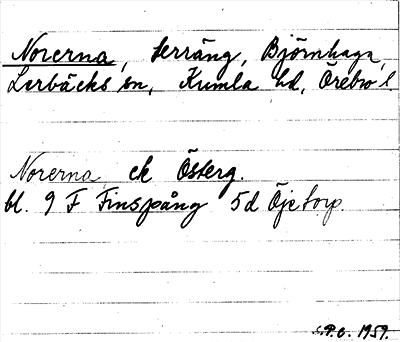 Norerna, terräng, Björnhaga,
Lerbäcks sn, Kumla hd, Örebro l
Norerna ek Österg.
bl. 9 F Finspång 5d Öjetorp.
1959.